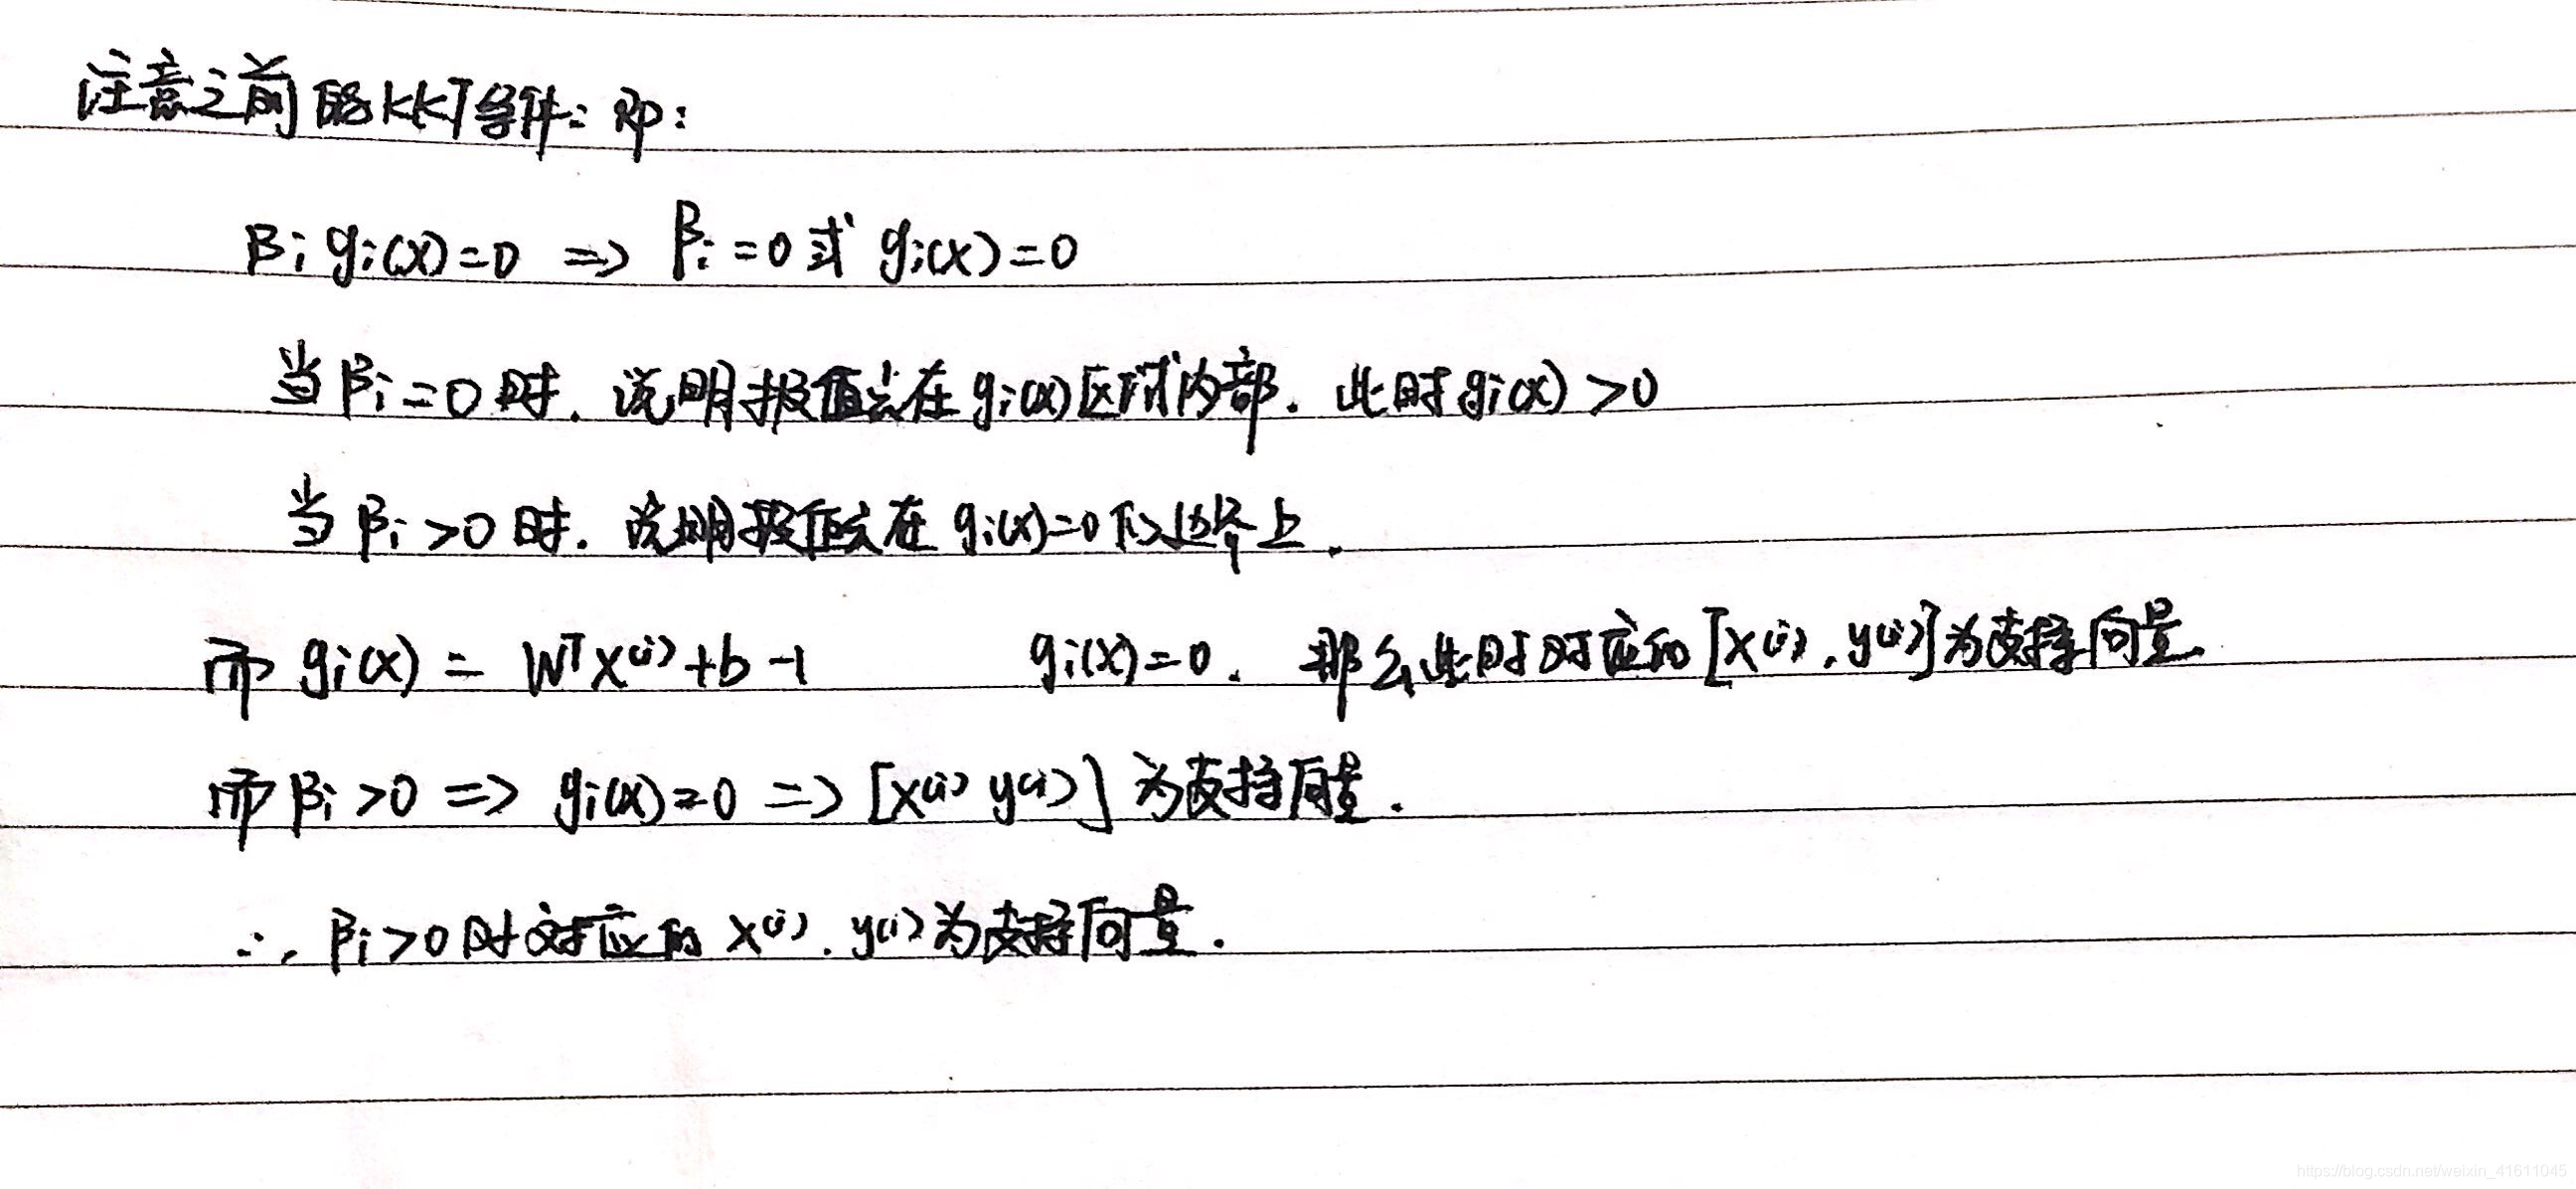 注意之前的KKT条件: 即:
βi gi(x)=0 => βi=0或 gi(x)=0
当βi=0时. 说明极值点在gi(x)区域内部. 此时gi(x)>0
当βi>0时. 说明极值点在 gi(x)=0的边界上.
而 gi(x) = WᵀX⁽ⁱ⁾+b-1 gi(x)=0. 那么此时对应的[X⁽ⁱ⁾, y⁽ⁱ⁾]为支持向量.
而βi>0 => gi(x)=0 => [X⁽ⁱ⁾ y⁽ⁱ⁾] 为支持向量.
∴, βi>0时对应的 X⁽ⁱ⁾. y⁽ⁱ⁾为支持向量.
https://blog.csdn.net/weixin_41611045